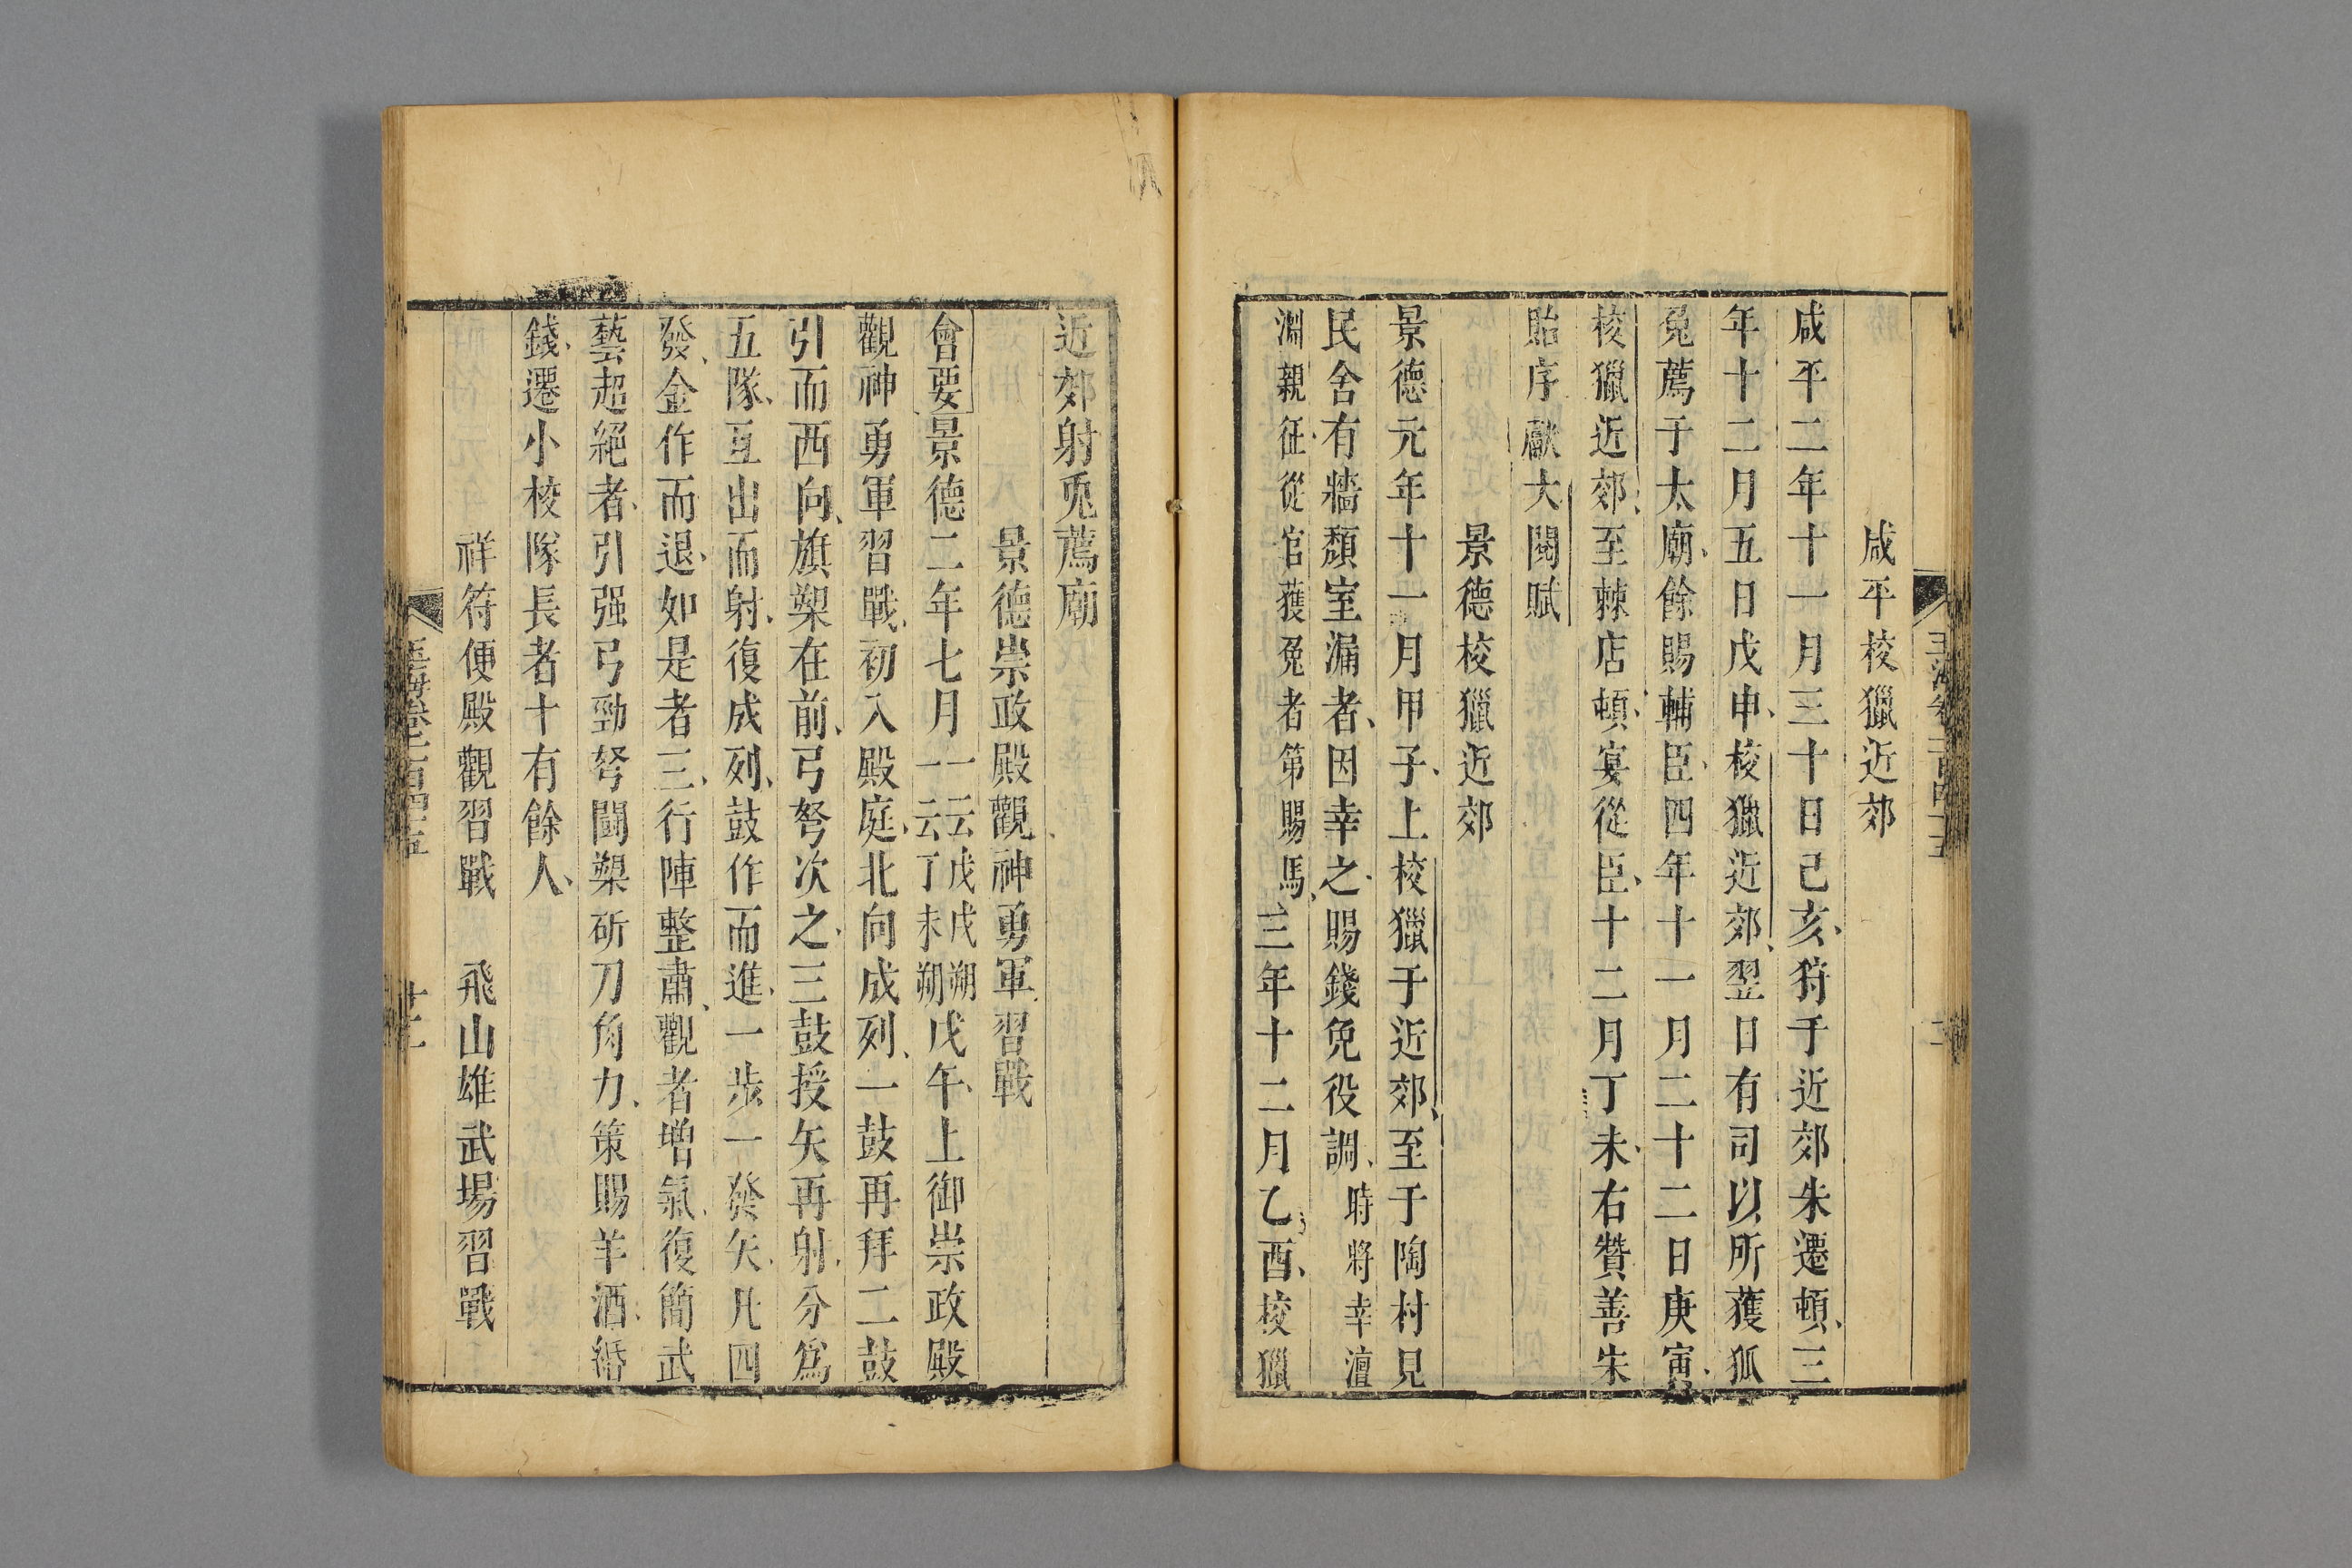 咸平校獵近郊
咸平二年十一月三十日己亥狩于近郊朱遷頓三
年十二月五日戊申校獵近郊翌日有司以所獲狐
兔薦于太廟餘賜輔臣四年十一月二十二日庚寅
校獵近郊至棘店頓宴從臣十二月丁未右贊善朱
貽序獻大閱賦
景德校獵近郊
景德元年十一月甲子上校獵于近郊至于陶村見
民舍有牆頹室漏者因幸之賜錢免役調時將幸澶
淵親征從官獲兔者第賜馬三年十二月乙酉校獵
近郊射兎薦廟
景德崇政殿觀神勇軍習戰
會要景德二年七月一云戊戌朔一云丁未朔戊午上御崇政殿
觀神勇軍習戰初入殿庭北向成列一鼓再拜二鼓
引而西向旗槊在前弓弩次之三鼓授矢再射分爲
五隊互出而射復成列鼓作而進一步一發矢凡四
發金作而退如是者三行陣整肅觀者增氣復簡武
藝超絕者引强弓勁弩鬭槊斫刀角力策賜羊酒緡
錢遷小校隊長者十有餘人
祥符便殿觀習戰　飛山雄武場習戰
玉海卷之一百四十五